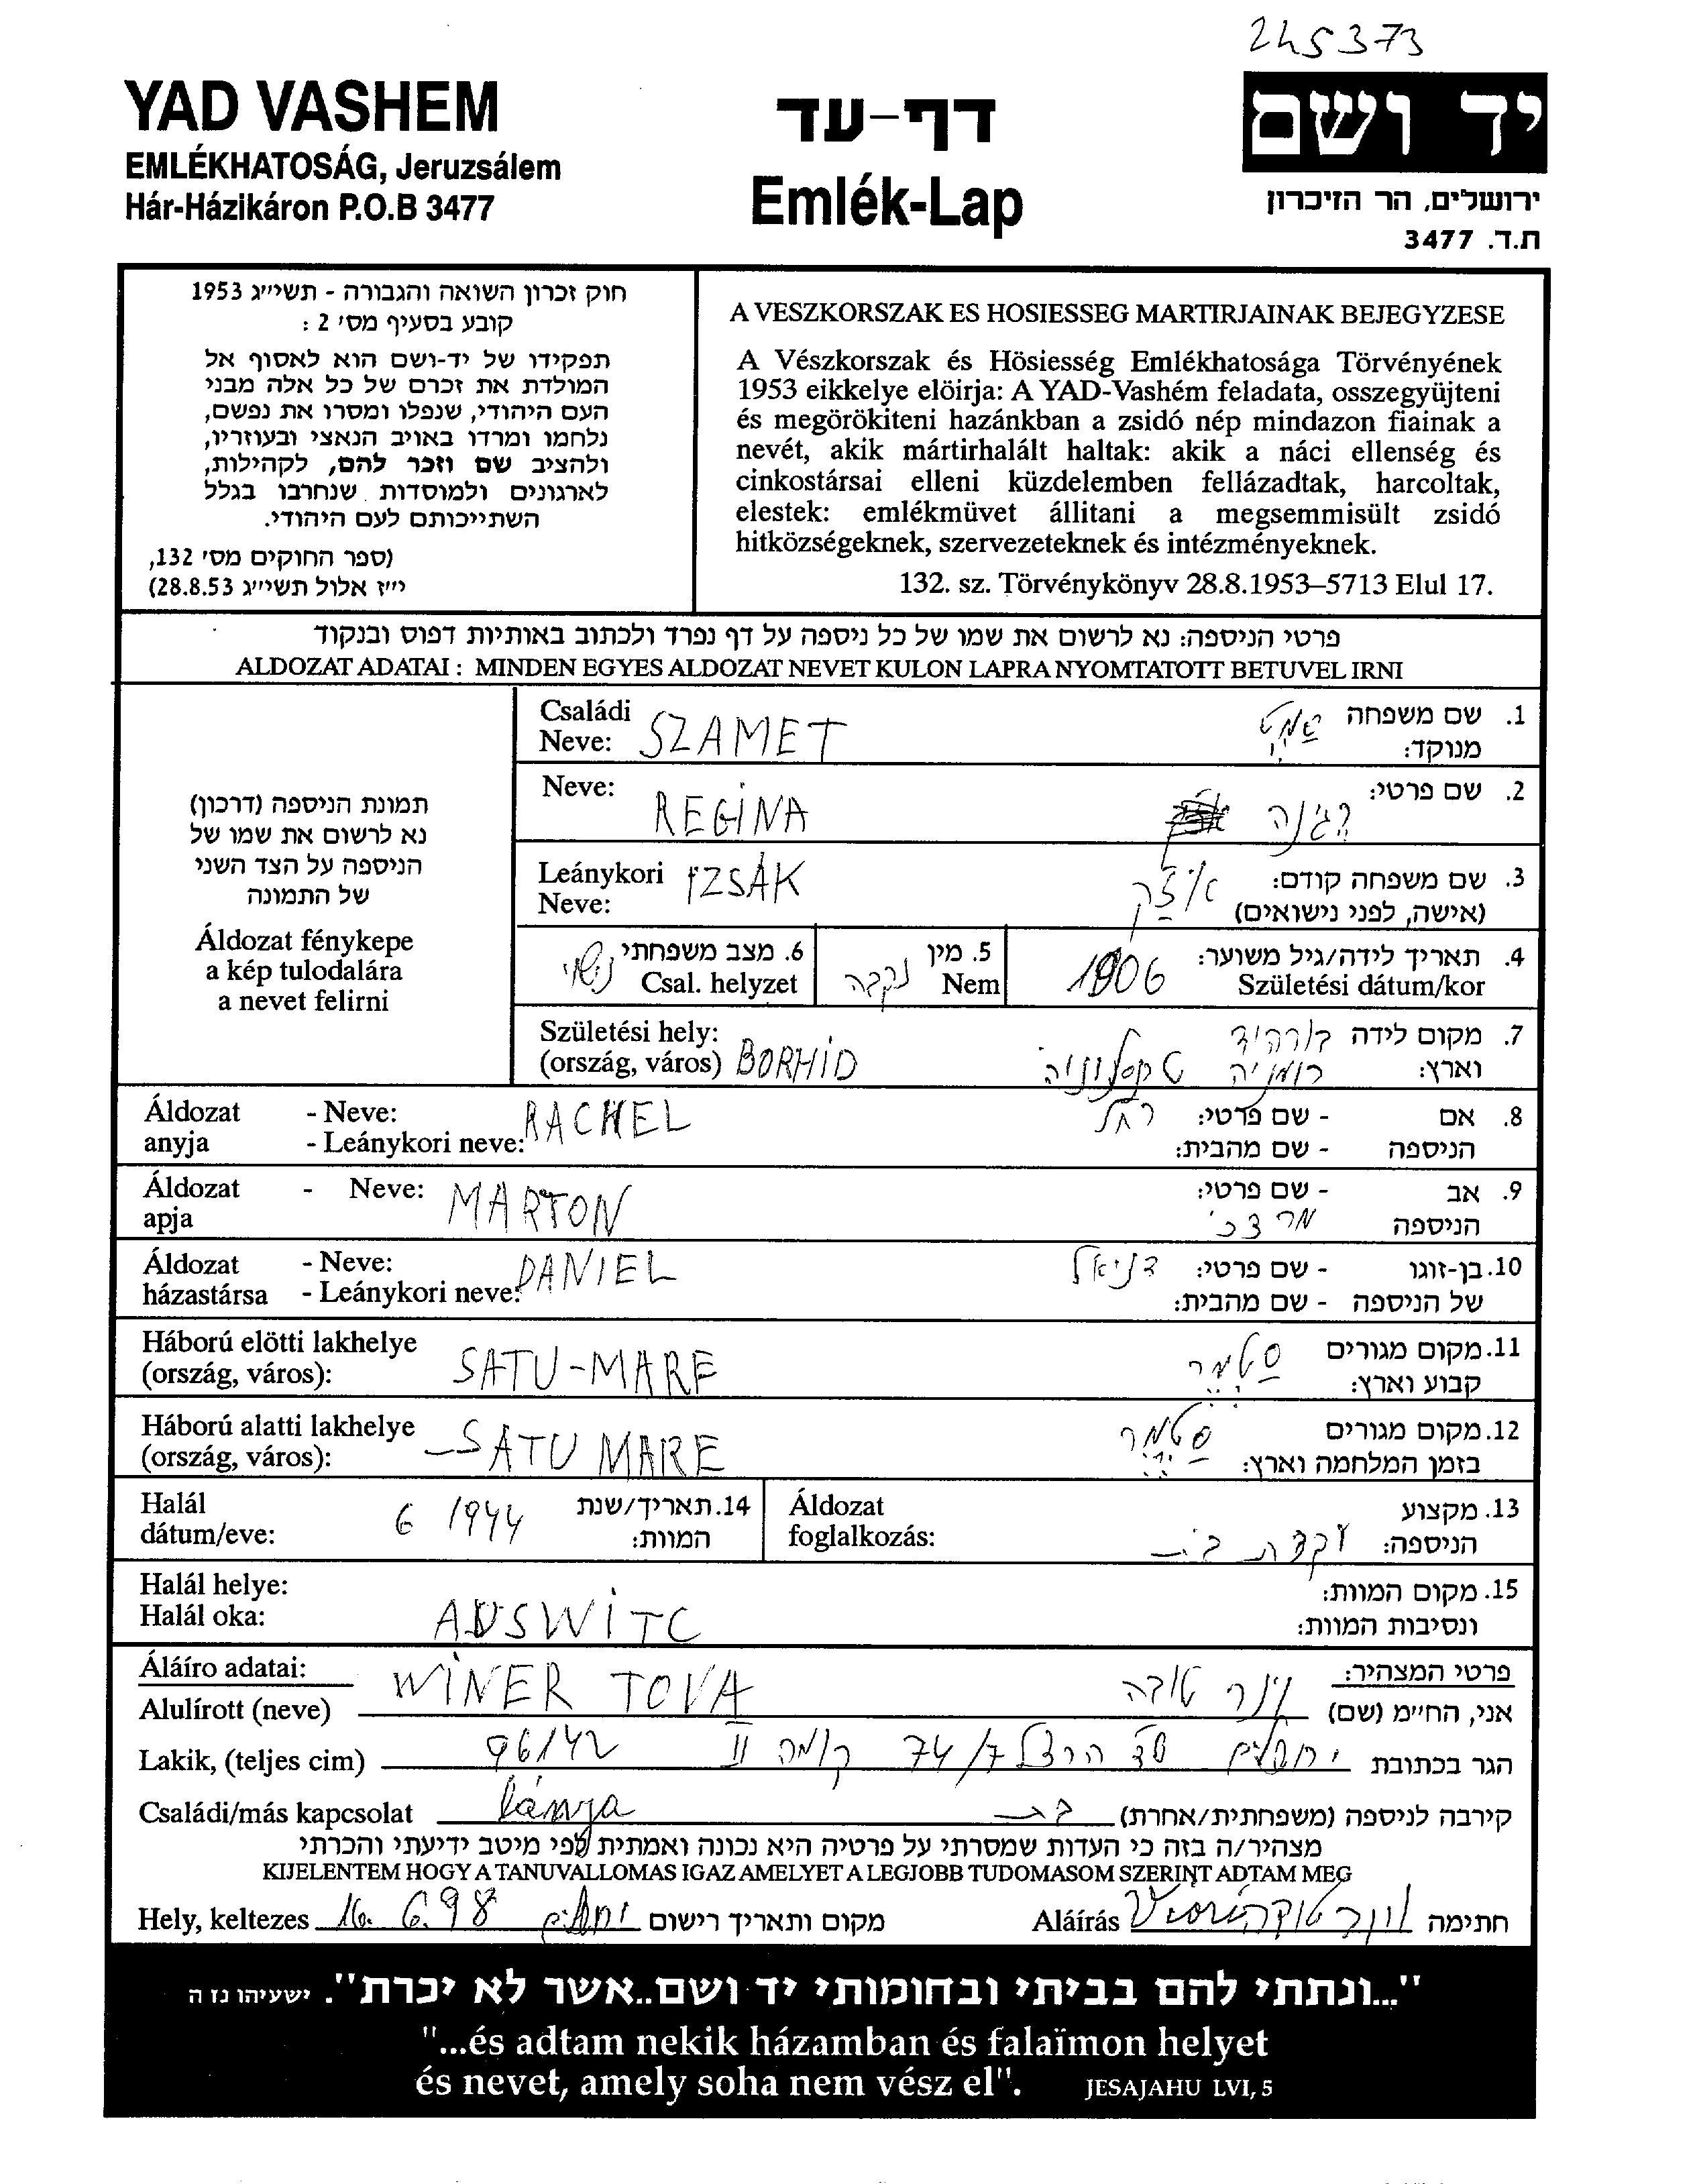 245373
YAD VASHEM
EMLÉKHATOSÁG, Jeruzsálem
Hár-Házikáron P.O.B 3477
דף-עד
Emlék-Lap
יד ושם
ירושלים, הר הזיכרון
ת.ד. 3477
חוק זכרון השואה והגבורה - תשי״ג 1953
קובע בסעיף מס׳ 2 :
תפקידו של יד-ושם הוא לאסוף אל
המולדת את זכרם של כל אלה מבני
העם היהודי, שנפלו ומסרו את נפשם,
נלחמו ומרדו באויב הנאצי ובעוזריו,
ולהציב שם וזכר להם, לקהילות,
לארגונים ולמוסדות שנחרבו בגלל
השתייכותם לעם היהודי.
(ספר החוקים מס׳ 132,
י״ז אלול תשי״ג 28.8.53)
A VESZKORSZAK ES HOSIESSEG MARTIRJAINAK BEJEGYZESE
A Vészkorszak és Hösiesség Emlékhatosága Törvényének
1953 eikkelye elöirja: A YAD-Vashém feladata, osszegyüjteni
és megörökiteni hazánkban a zsidó nép mindazon fiainak a
nevét, akik mártirhalált haltak: akik a náci ellenség és
cinkostársai elleni küzdelemben fellázadtak, harcoltak,
elestek: emlékmüvet állitani a megsemmisült zsidó
hitközségeknek, szervezeteknek és intézményeknek.
132. sz. Törvénykönyv 28.8.1953–5713 Elul 17.
פרטי הניספה: נא לרשום את שמו של כל ניספה על דף נפרד ולכתוב באותיות דפוס ובנקוד
ALDOZAT ADATAI : MINDEN EGYES ALDOZAT NEVET KULON LAPRA NYOMTATOTT BETUVEL IRNI
תמונת הניספה (דרכון)
נא לרשום את שמו של
הניספה על הצד השני
של התמונה
Áldozat fénykepe
a kép tulodalára
a nevet felirni
Családi
Neve: SZAMET
1. שם משפחה
מנוקד: שמט
Neve: REGINA
2. שם פרטי: רגינה
Leánykori
Neve: IZSÁK
3. שם משפחה קודם: איזק
(אישה, לפני נישואים)
6. מצב משפחתי נשוי
Csal. helyzet
5. מין נקבה
Nem
4. תאריך לידה/גיל משוער: 1906
Születési dátum/kor
Születési hely:
(ország, város) BORHID
7. מקום לידה בורהיד
וארץ: רומניה טרנסילבניה
Áldozat - Neve: RACHEL
anyja - Leánykori neve:
8. אם - שם פרטי: רחל
הניספה - שם מהבית:
Áldozat - Neve: MARTON
apja
9. אב - שם פרטי:
הניספה מרדכי
Áldozat - Neve: DANIEL
házastársa - Leánykori neve:
10. בן-זוגו - שם פרטי: דניאל
של הניספה - שם מהבית:
Háború elötti lakhelye
(ország, város): SATU-MARE
11. מקום מגורים סטמר
קבוע וארץ:
Háború alatti lakhelye
(ország, város): SATU MARE
12. מקום מגורים סטמר
בזמן המלחמה וארץ:
Halál
dátum/eve: 6 1944
14. תאריך/שנת
המוות:
Áldozat
foglalkozás:
13. מקצוע
הניספה: עקרת בית
Halál helye:
Halál oka: AUSWITC
15. מקום המוות:
ונסיבות המוות:
Áláíro adatai:
פרטי המצהיר:
Alulírott (neve) WINER TOVA
אני, הח״מ (שם) וינר טובה
Lakik, (teljes cim) 96142
הגר בכתובת ירושלים שד הרצל 74/7 קומה II
Családi/más kapcsolat lánya
קירבה לניספה (משפחתית/אחרת) בת
מצהיר/ה בזה כי העדות שמסרתי על פרטיה היא נכונה ואמתית לפי מיטב ידיעתי והכרתי
KIJELENTEM HOGY A TANUVALLOMAS IGAZ AMELYET A LEGJOBB TUDOMASOM SZERINT ADTAM MEG
Hely, keltezes 16. 6.98 ירושלים מקום ותאריך רישום
Aláírás וינר טובה חתימה
"...ונתתי להם בביתי ובחומותי יד ושם..אשר לא יכרת". ישעיהו נז ה
"...és adtam nekik házamban és falaïmon helyet
és nevet, amely soha nem vész el". JESAJAHU LVI, 5